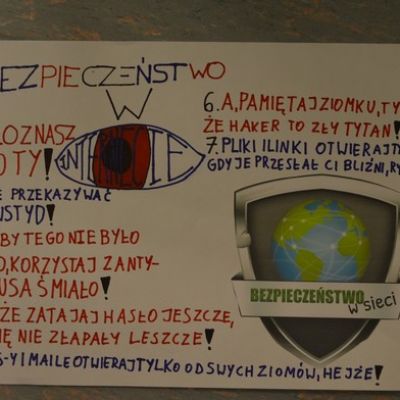 BEZPIECZEŃSTWO
W
INTERNECIE
OZNASZ
OTY!
E PRZEKAZYWAĆ
USTYD!
BY TEGO NIE BYŁO
O, KORZYSTAJ Z ANTY-
USA ŚMIAŁO!
ŻE ZATAJAJ HASŁO JESZCZE,
IĘ NIE ZŁAPAŁY LESZCZE!
S-Y I MAILE OTWIERAJ TYLKO OD SWYCH ZIOMÓW, HEJŻE!
6. A, PAMIĘTAJ ZIOMKU, TY
ŻE HAKER TO ZŁY TYTAN!
7. PLIKI I LINKI OTWIERAJ TY
GDY JE PRZESŁAŁ CI BLIŹNI, RY
BEZPIECZEŃSTWO
w sieci